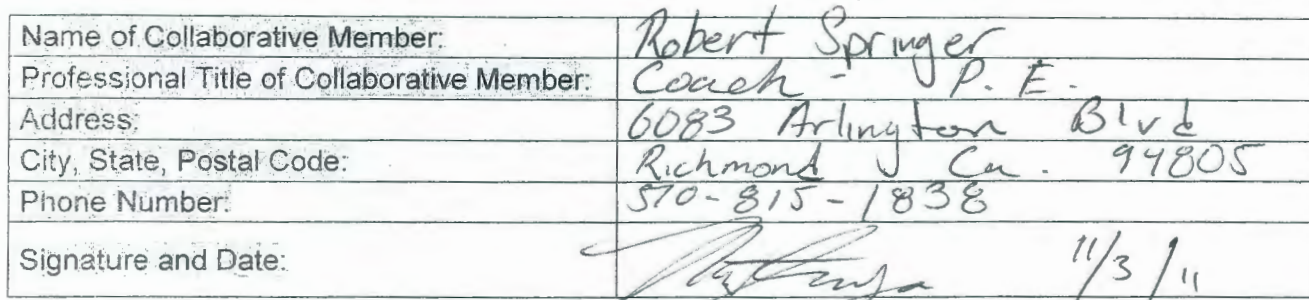 Name of Collaborative Member: Robert Springer
Professional Title of Collaborative Member: Coach - P. E.
Address: 6083 Arlington Blvd
City, State, Postal Code: Richmond Ca. 94805
Phone Number: 510-815-1838
Signature and Date: 11/3/11